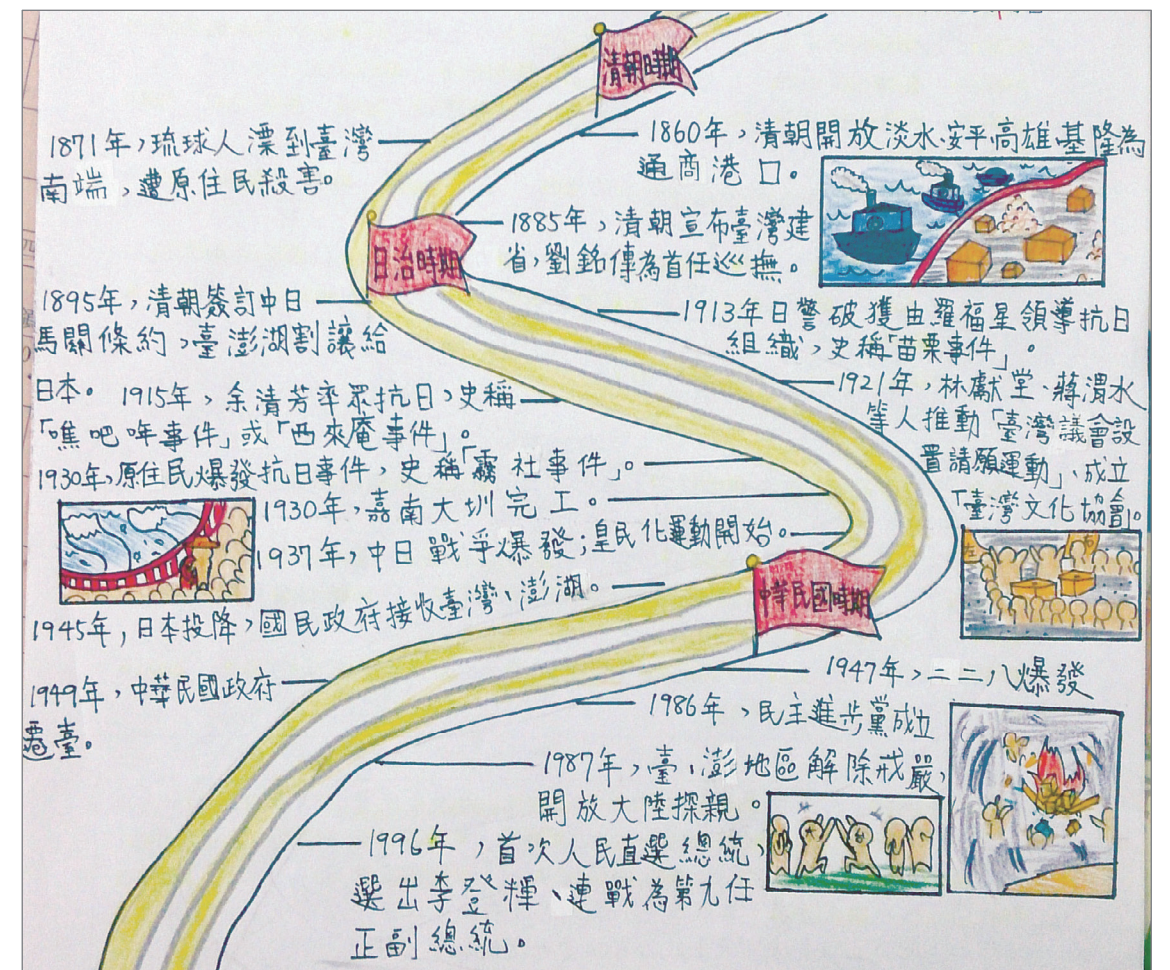 清朝時期
1860年，清朝開放淡水、安平、高雄、基隆為
通商港口。
1871年，琉球人漂到臺灣
南端，遭原住民殺害。
1885年，清朝宣布臺灣建
省，劉銘傳為首任巡撫。
日治時期
1895年，清朝簽訂中日
馬關條約，臺澎湖割讓給
日本。
1913年日警破獲由羅福星領導抗日
組織，史稱「苗栗事件」。
1915年，余清芳率眾抗日，史稱
「噍吧哖事件」或「西來庵事件」。
1921年，林獻堂、蔣渭水
等人推動「臺灣議會設
置請願運動」、成立
「臺灣文化協會」。
1930年，原住民爆發抗日事件，史稱「霧社事件」。
1930年，嘉南大圳完工。
1937年，中日戰爭爆發；皇民化運動開始。
中華民國時期
1945年，日本投降，國民政府接收臺灣、澎湖。
1947年，二二八爆發
1949年，中華民國政府
遷臺。
1986年，民主進步黨成立
1987年，臺、澎地區解除戒嚴，
開放大陸探親。
1996年，首次人民直選總統，
選出李登輝、連戰為第九任
正副總統。